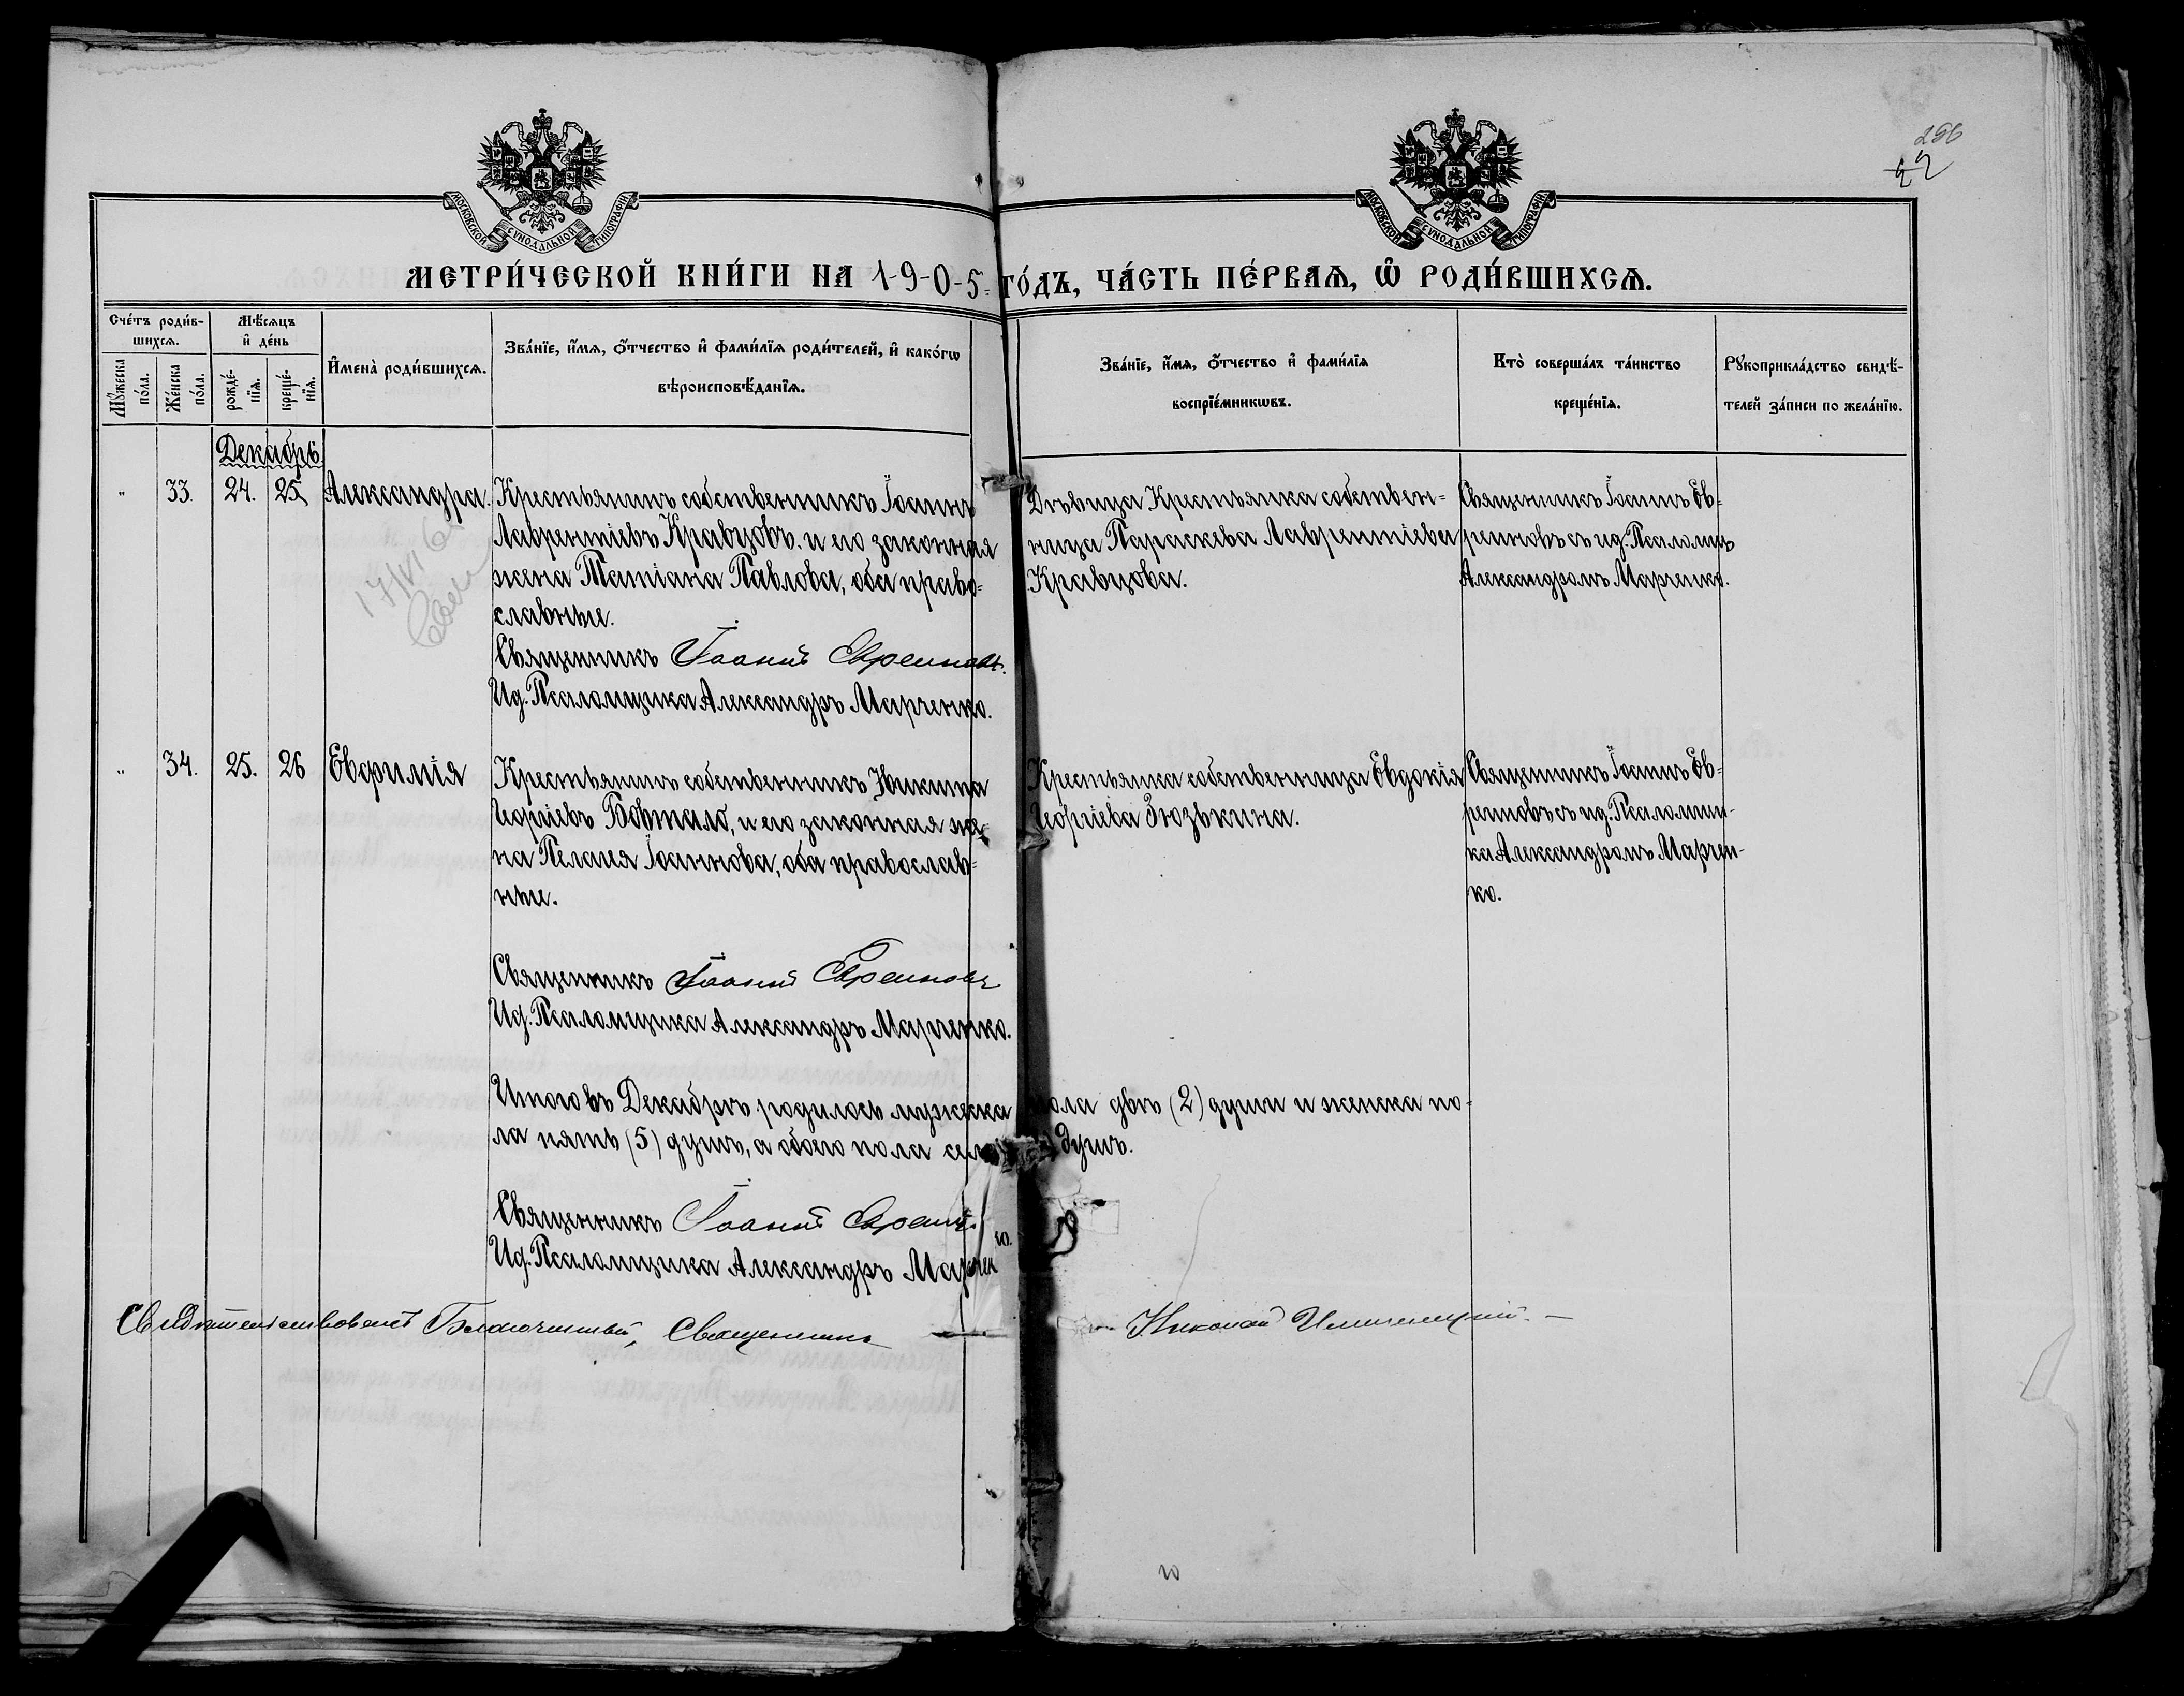 256
22
МОСКОВСКОЙ СѴНОДАЛЬНОЙ ТИПОГРАФІИ
МОСКОВСКОЙ СѴНОДАЛЬНОЙ ТИПОГРАФІИ
МЕТРИ́ЧЕСКОЙ КНИ́ГИ НА 1-9-0-5 ГО́ДЪ, ЧА́СТЬ ПЕ́РВАѦ, Ѡ҆ РОДИ́ВШИХСѦ.
Сче́тъ роди́вшихсѧ.
Мѣ́сѧцъ и҆ де́нь
И҆мена̀ роди́вшихсѧ.
Зва́нїе, и҆́мѧ, ѻ҆́тчество и҆ фами́лїѧ роди́телей, и҆ како́гѡ
вѣроисповѣ́данїѧ.
Зва́нїе, и҆́мѧ, ѻ҆́тчество и҆ фами́лїѧ
воспрїе́мникѡвъ.
Кто̀ соверша́лъ та́инство
креще́нїѧ.
Рꙋкоприкла́дство свидѣ́-
телей за́писи по жела́нїю.
Мꙋ́жеска по́ла.
Же́нска по́ла.
рожде́нїѧ.
креще́нїѧ.
Декабрь.
" 33. 24. 25. Александра.
Крестьянинъ собственникъ Іоаннъ
Лаврентіевъ Кравцовъ, и его законная
жена Татіана Павлова, оба право=
славные.
Священникъ Іоаннъ Евреиновъ.
Ид. Псаломщика Александръ Марченко.
Дѣвица Крестьянка собствен=
ница Параскева Лаврентіева
Кравцова.
Священникъ Іоаннъ Ев=
реиновъ съ ид. Псаломщ
Александромъ Марченко.
17/VI 6
" 34. 25. 26 Евфимія
Крестьянинъ собственникъ Никита
Георгіевъ Бовтало, и его законная же=
на Пелагея Іоаннова, оба православ=
ные.
Священникъ Іоаннъ Евреиновъ
Ид. Псаломщика Александръ Марченко.
Крестьянка собственница Евдокія
Георгіева Зюзькина.
Священникъ Іоаннъ Ев=
реиновъ съ ид. Псаломщи-
ка Александромъ Марчен-
ко.
Итого въ Декабрѣ родилось мужеска пола двѣ (2) души и женска по=
ла пять (5) душъ, а обоего пола душъ.
Священникъ Іоаннъ
Ид. Псаломщика Александръ
Свидѣтельствовалъ Благочинный, Священникъ Николай